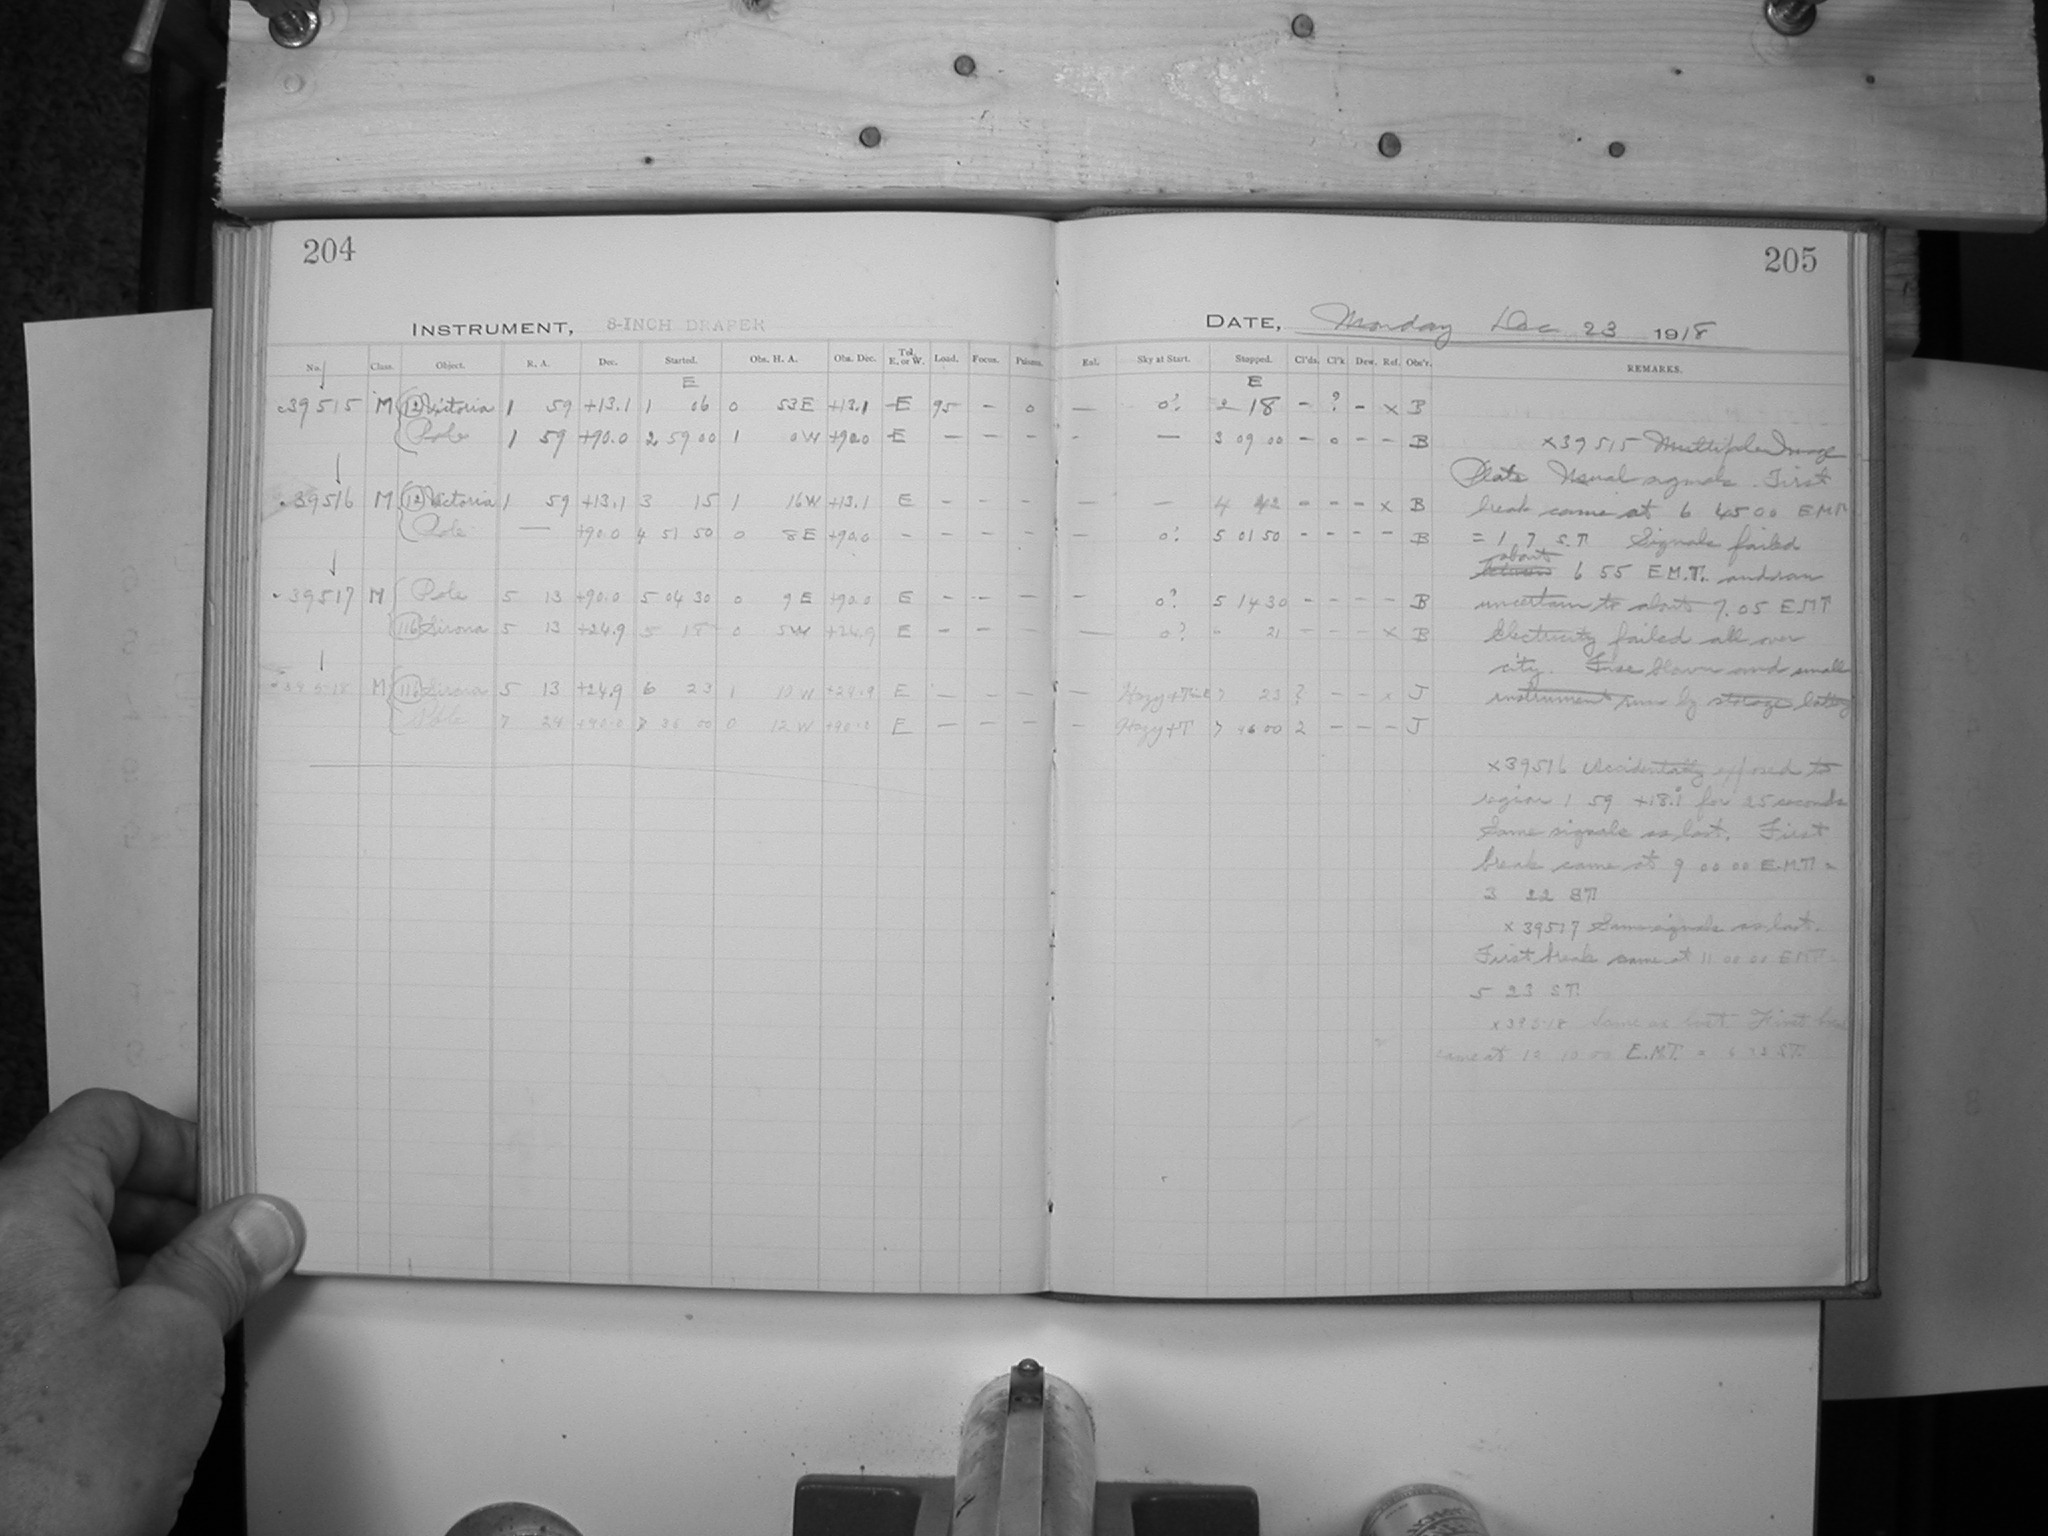 204
205
INSTRUMENT, 8-INCH DRAPER
DATE, Monday Dec 23 1918
No. Class. Object. R. A. Dec. Started. Obs. H. A. Obs. Dec. Tel. E. or W. Load. Focus. Prisms. Enl. Sky at Start. Stopped. Cl'ds. Cl'k Dew. Ref. Obs'r. REMARKS.
E E
39515 M 12 Victoria 1 59 +13.1 1 06 0 53E +13.1 E 95 - 0 — 0? 2 18 - ? - x B
Pole 1 59 +90.0 2 59 00 1 0W +90.0 E - - - - — 3 09 00 - 0 - - B
39516 M 12 Victoria 1 59 +13.1 3 15 1 16W +13.1 E - - - — — 4 42 - - - x B
Pole — +90.0 4 51 50 0 8E +90.0 - - - - — 0? 5 01 50 - - - - B
39517 M Pole 5 13 +90.0 5 04 30 0 9E +90.0 E - - - - 0? 5 14 30 - - - - B
116 Sirona 5 13 +24.9 5 18 0 5W +24.9 E - - - — 0? - 21 - - - x B
39518 M 116 Sirona 5 13 +24.9 6 23 1 10W +24.9 E - - - — Hazy + 7 23 ? - - x J
Pole 7 24 +90.0 7 36 00 0 12W +90.0 E - - - - Hazy+T 7 46 00 2 - - - J
x39515 Multiple Image
Plate Usual signals. First
break came at 6 45 00 E.M.T.
= 1 7 S.T. Signals failed
about
between 6 55 E.M.T. and ran
uncertain to about 7.05 EMT
Electricity failed all over
city. Fuse blown and small
instrument run by storage battery
x39516 Accidentally exposed to
region 1 59 +18.1 for 25 seconds
Same signals as last. First
break came at 9 00 00 E.M.T. =
3 22 ST
x39517 Same signals as last.
First break came at 11 00 00 EMT =
5 23 S.T.
x39518 Same as last First
came at 12 10 00 E.M.T. = 6 S.T.